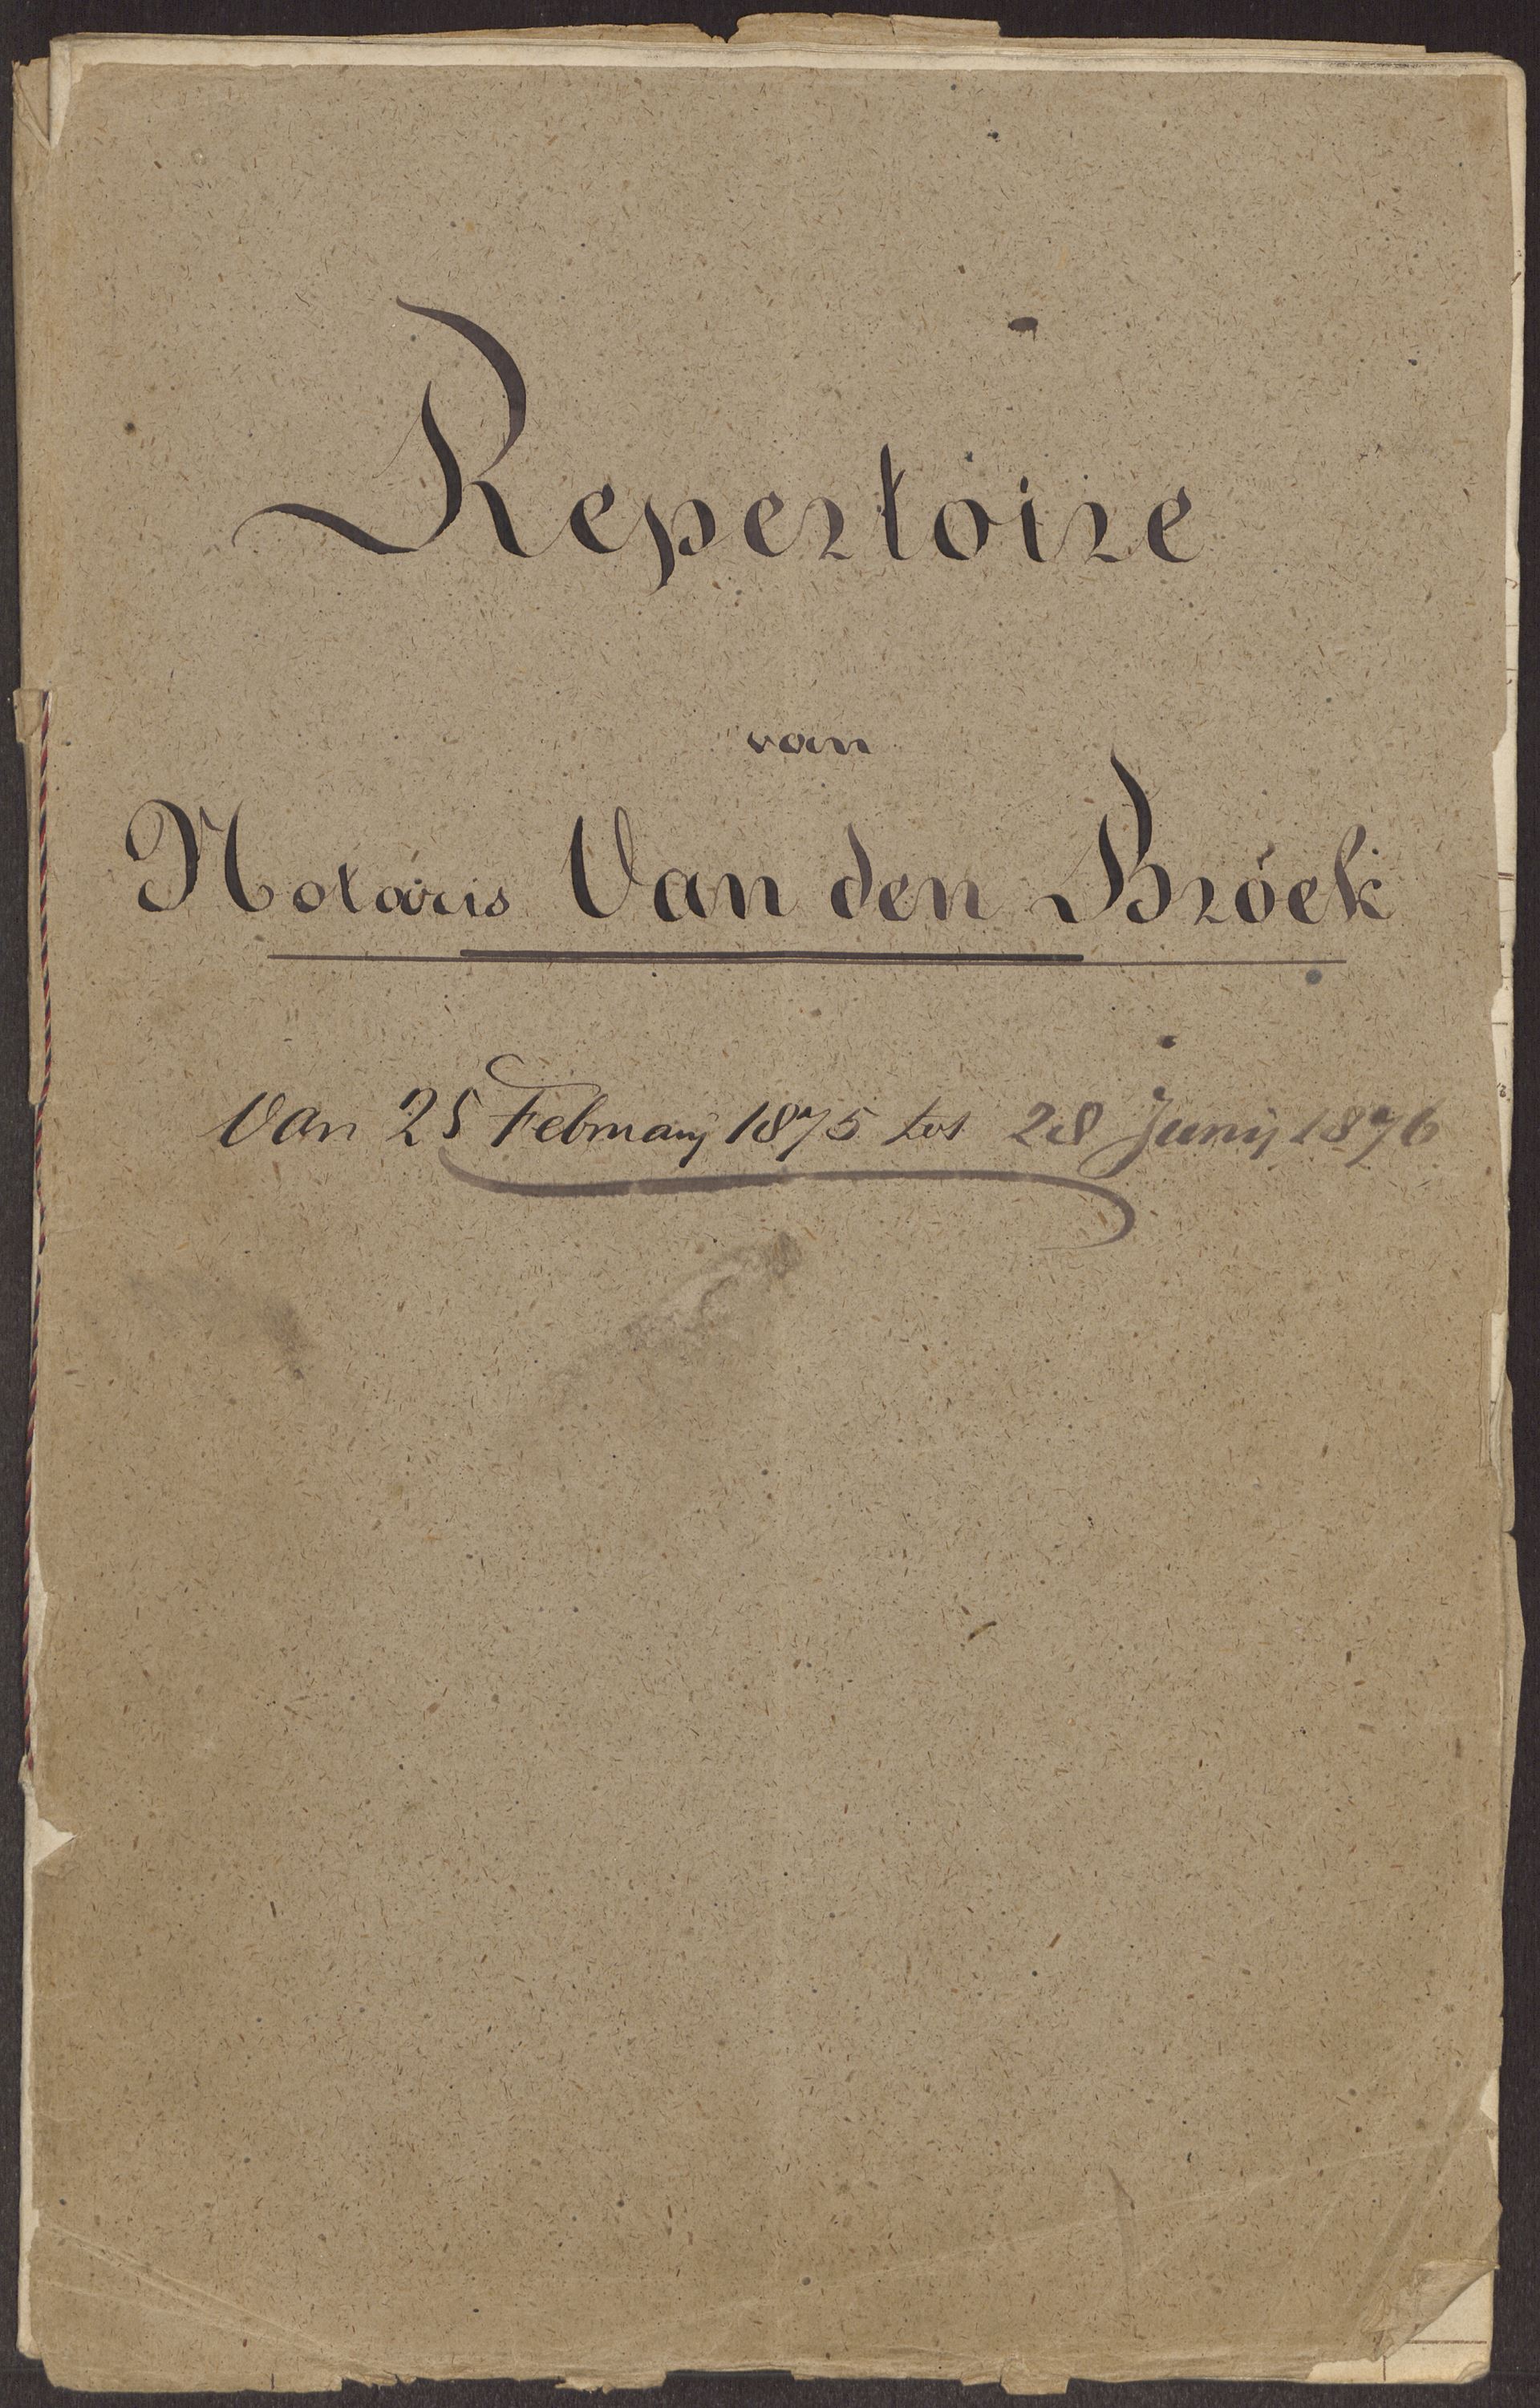 Repertoire
van
Notaris Van den Broek
Van 25 Februarij 1875 tot 28 Junij 1876